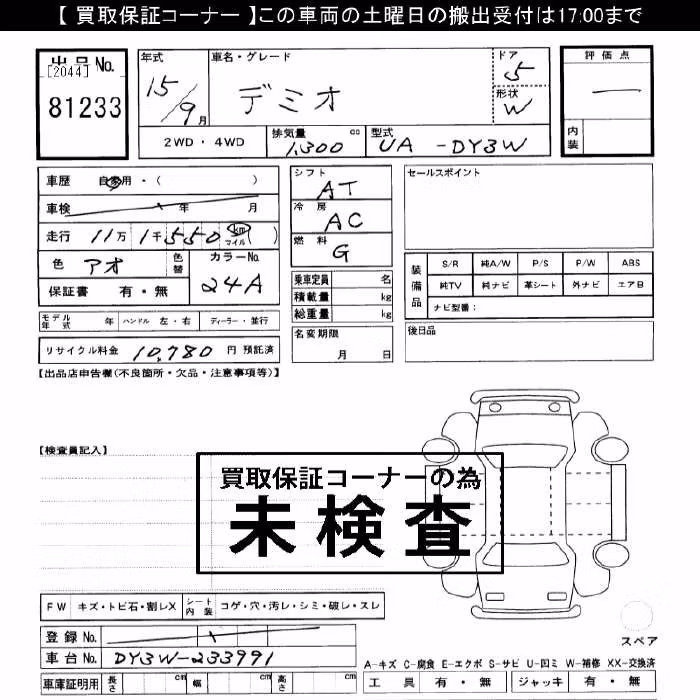 【 買取保証コーナー 】この車両の土曜日の搬出受付は17:00まで
出品No.
[2044]
81233
年式
15/9月
車名・グレード
デミオ
ドア
5
形状
W
評価点
—
内装
2WD・4WD
排気量
1,300 cc
型式
UA -DY3W
車歴 自家用・( )
車検 年 月
走行 11万 1千550 km マイル ( )
色 アオ 色替
カラーNo.
24A
保証書 有・無
シフト
AT
冷房
AC
燃料
G
乗車定員 名
積載量 kg
総重量 kg
名変期限
月 日
セールスポイント
装備品
S/R 純A/W P/S P/W ABS
純TV 純ナビ 革シート 外ナビ エアB
ナビ型番：
後日品
モデル年式 年 ハンドル 左・右 ディーラー・並行
リサイクル料金 10,780 円 預託済
【出品店申告欄(不良箇所・欠品・注意事項等)】
【検査員記入】
買取保証コーナーの為
未検査
FW キズ・トビ石・割レX シート内装 コゲ・穴・汚レ・シミ・破レ・スレ
登録No.
車台No. DY3W-233991
車庫証明用 長さ cm 幅 cm 高さ cm
スペア
A-キズ C-腐食 E-エクボ S-サビ U-凹ミ W-補修 XX-交換済
工具 有・無 ジャッキ 有・無